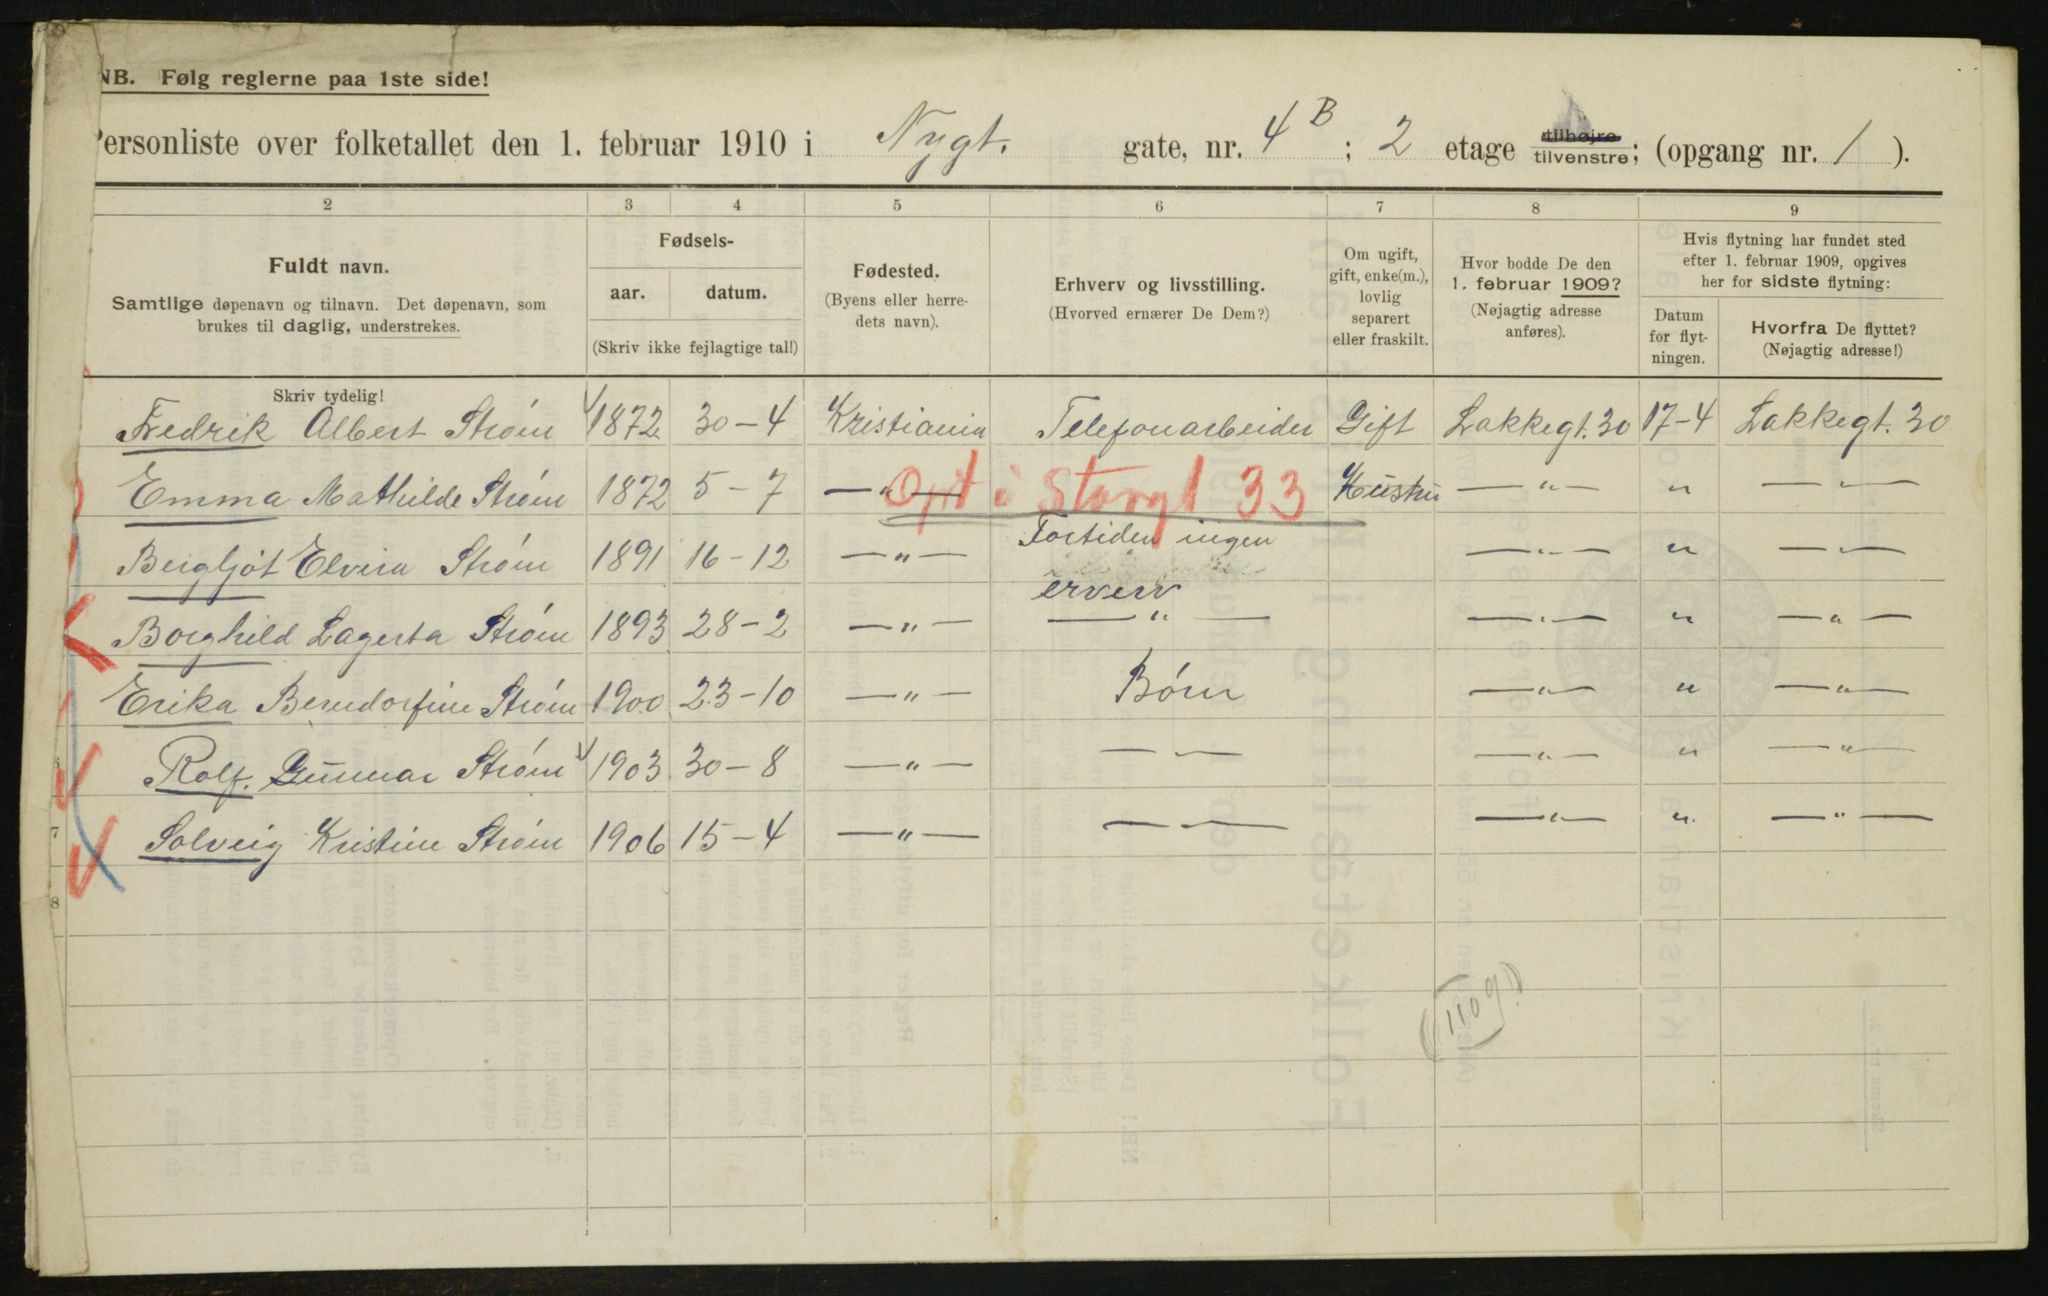 NB. Følg reglerne paa 1ste side!
Personliste over folketallet den 1. februar 1910 i Nygt. gate, nr. 4 B; 2 etage tilhøjre tilvenstre; (opgang nr. 1).
2 3 4 5 6 7 8 9
Fuldt navn.
Samtlige døpenavn og tilnavn. Det døpenavn, som
brukes til daglig, understrekes.
Fødsels-
aar. datum.
(Skriv ikke fejlagtige tal!)
Fødested.
(Byens eller herre-
dets navn).
Erhverv og livsstilling.
(Hvorved ernærer De Dem?)
Om ugift,
gift, enke(m.),
lovlig
separert
eller fraskilt.
Hvor bodde De den
1. februar 1909?
(Nøjagtig adresse
anføres).
Hvis flytning har fundet sted
efter 1. februar 1909, opgives
her for sidste flytning:
Datum
for flyt-
ningen.
Hvorfra De flyttet?
(Nøjagtig adresse!)
Skriv tydelig!
Fredrik Albert Strøm 1872 30-4 Kristiania Telefonarbeider Gift Lakkegt. 30 17-4 Lakkegt. 30
Emma Mathilde Strøm 1872 5-7 —"— Opt i Storgt 33 Hustru —"— " —"—
Bergljót Elvira Strøm 1891 16-12 —"— Fortiden ingen —"— " —"—
erverv
Borghild Lagerta Strøm 1893 28-2 —"— —"— —"— " —"—
Erika Berndorfine Strøm 1900 23-10 —"— Børn —"— " —"—
6 Rolf. Gunnar Strøm 1903 30-8 —"— — — —"— " —"—
7 Solveig Kristine Strøm 1906 15-4 —"— — — —"— " —"—
8